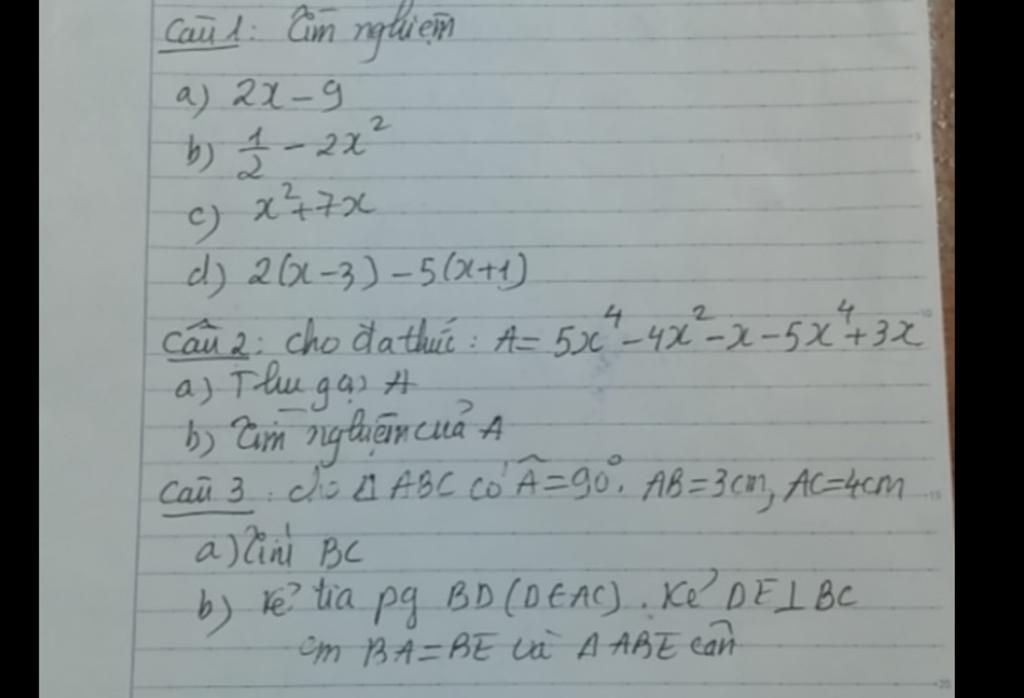 Câu 1: Tìm nghiệm
a) 2x - 9
b) 1/2 - 2x²
c) x² + 7x
d) 2(x - 3) - 5(x + 1)
Câu 2: cho đa thức: A = 5x⁴ - 4x² - x - 5x⁴ + 3x
a) Thu gọn A
b) Tìm nghiệm của A
Câu 3: cho Δ ABC có Â = 90°. AB = 3cm, AC = 4cm
a) Tính BC
b) Kẻ tia pg BD (D ∈ AC). Kẻ DE ⊥ BC
cm BA = BE và Δ ABE cân